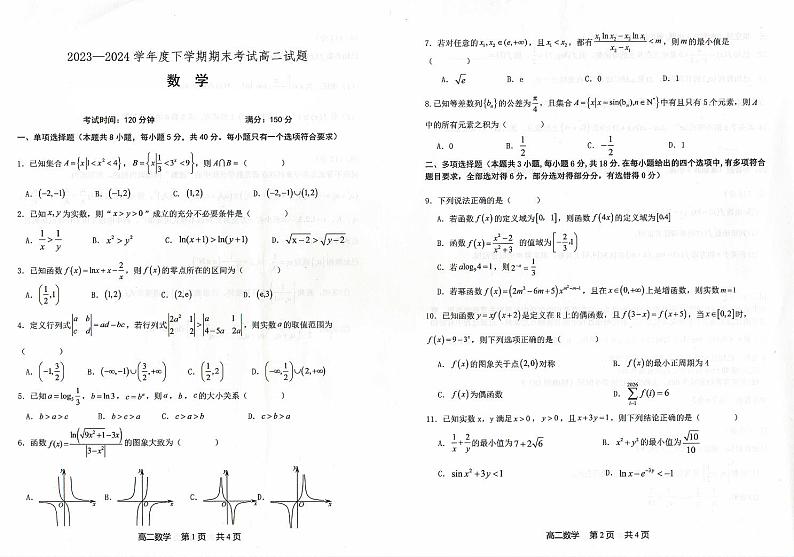 2023—2024 学年度下学期期末考试高二试题
数 学
考试时间：120 分钟 满分：150 分
一、单项选择题（本题共 8 小题，每小题 5 分，共 40 分。每小题只有一个选项符合要求）
1．已知集合 A={x|1<x²<4}，B={x|1/3<3ˣ<9}，则 A∩B=（ ）
A．(-2,-1) B．(-1,2) C．(1,2) D．(-2,-1)∪(1,2)
2．已知 x,y 为实数，则“ x>y>0 ”成立的充分不必要条件是（ ）
A．1/x>1/y B．x²>y² C．ln(x+1)>ln(y+1) D．√(x-2)>√(y-2)
3．已知函数 f(x)=lnx+x-2/x，则 f(x) 的零点所在的区间为（ ）
A．(1/2,1) B．(1,2) C．(2,e) D．(e,3)
4．定义行列式 |a b; c d|=ad-bc，若行列式 |2a² 1; 2 2|>|a 1; 4-5a 2a|，则实数 a 的取值范围为
（ ）
A．(-1,3/2) B．(-∞,-1)∪(3/2,+∞) C．(1/2,2) D．(-∞,1/2)∪(2,+∞)
5．已知 a=log₅ 1/3，b=ln3，c=bᵉ，则 a，b，c 的大小关系（ ）
A．b>a>c B．b>c>a C．c>a>b D．c>b>a
6．函数 f(x)=ln(√(9x²+1)-3x)/|3-x²| 的图象大致为（ ）
A． B． C． D．
高二数学 第 1 页 共 4 页
7．若对任意的 x₁,x₂∈(e,+∞)，且 x₁<x₂，都有 (x₁lnx₂-x₂lnx₁)/(x₂-x₁)<m，则 m 的最小值是
（ ）
A．√e B．e C．0 D．1
8．已知等差数列{bₙ}的公差为 π/4，且集合 A={x|x=sin(bₙ),n∈N*} 中有且只有 5 个元素，则 A
中的所有元素之积为（ ）
A．0 B．1/2 C．-1/2 D．1
二、多项选择题（本题共 3 小题，每小题 6 分，共 18 分．在每小题给出的四个选项中，有多项符合
题目要求，全部选对得 6 分，部分选对得部分分，有选错得 0 分）
9．下列说法正确的是（ ）
A．若函数 f(x) 的定义域为[0，1]，则函数 f(4x) 的定义域为[0,4]
B．函数 f(x)=(x²-2)/(x²+3) 的值域为 [-2/3,1)
C．若 alog₉4=1，则 2⁻ᵃ=1/3
D．若幂函数 f(x)=(2m²-6m+5)x^(m²-m-1)，且在 x∈(0,+∞) 上是增函数，则实数 m=1
10．已知函数 y=xf(x+2) 是定义在 R 上的偶函数，且 f(3-x)=f(x+5)，当 x∈[0,2] 时，
f(x)=9-3ˣ，则下列选项正确的是（ ）
A．f(x) 的图象关于点 (2,0) 对称 B．f(x) 的最小正周期为 4
C．f(x) 为偶函数 D．∑_{i=1}^{2026} f(i)=6
11．已知实数 x，y 满足 x>0，y>0，且 x+3y=1，则下列结论正确的是（ ）
A．1/x+2/y 的最小值为 7+2√6 B．x²+y² 的最小值为 √10/10
C．sin x²+3y<1 D．ln x-e⁻³ʸ<-1
高二数学 第 2 页 共 4 页